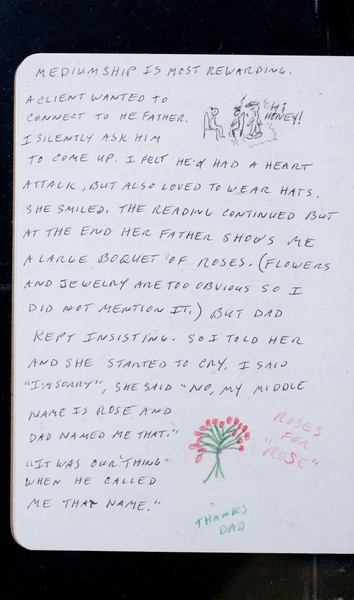 MEDIUMSHIP IS MOST REWARDING.
A CLIENT WANTED TO
CONNECT TO HE FATHER.
I SILENTLY ASK HIM
TO COME UP. I FELT HE'd HAD A HEART
ATTALK, BUT ALSO LOVED TO WEAR HATS.
SHE SMILED. THE READING CONTINUED BUT
AT THE END HER FATHER SHOWS ME
A LARGE BOQUET OF ROSES. (FLOWERS
AND JEWELRY ARE TOO OBVIOUS SO I
DID NOT MENTION IT.) BUT DAD
KEPT INSISTING. SO I TOLD HER
AND SHE STARTED TO CRY. I SAID
"I'M SORRY", SHE SAID "NO, MY MIDDLE
NAME IS ROSE AND
DAD NAMED ME THAT."
"IT WAS OUR THING"
WHEN HE CALLED
ME THAT NAME."
Hi
HONEY!
ROSES
FOR
"ROSE"
THANKS
DAD